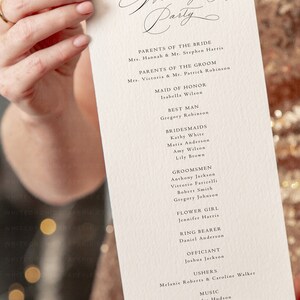 Party
PARENTS OF THE BRIDE
Mrs. Hannah & Mr. Stephen Harris
PARENTS OF THE GROOM
Mrs. Victoria & Mr. Patrick Robinson
MAID OF HONOR
Isabella Wilson
BEST MAN
Gregory Robinson
BRIDESMAIDS
Kathy White
Maria Anderson
Amy Wilson
Lily Brown
GROOMSMEN
Anthony Jackson
Vittorio Farricelli
Robert Smith
Gregory Johnson
FLOWER GIRL
Jennifer Harris
RING BEARER
Daniel Anderson
OFFICIANT
Joshua Jackson
USHERS
Melanie Roberts & Caroline Walker
MUSIC
Hudson